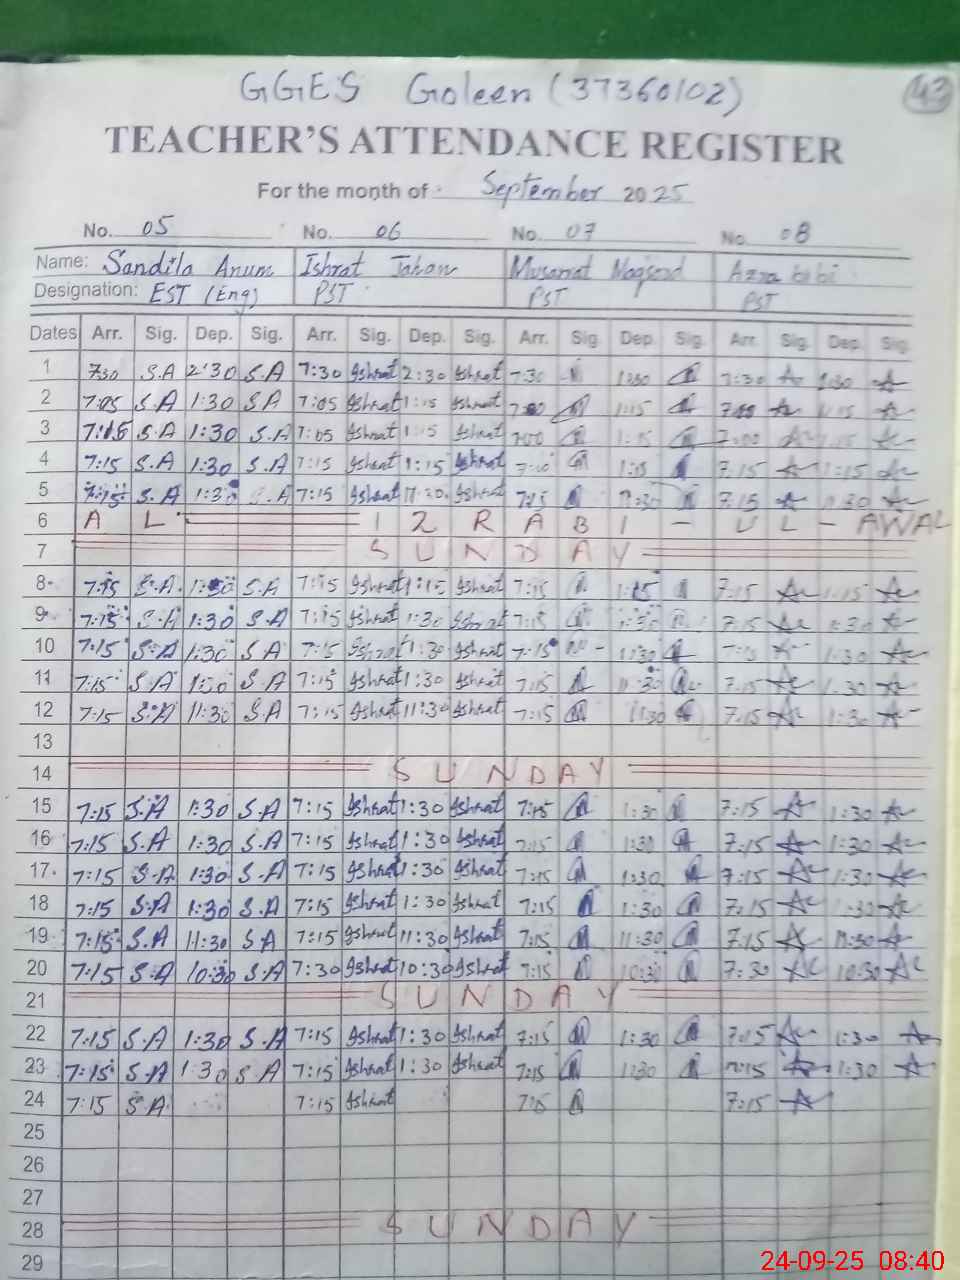 GGES Goleen (37360102) 43
TEACHER'S ATTENDANCE REGISTER
For the month of September 2025
No. 05 No. 06 No. 07 No. 08
Name: Sandila Anum Ishrat Jahan Musarat Azra bibi
Designation: EST (Eng) PST PST PST
Dates Arr. Sig. Dep. Sig. Arr. Sig. Dep. Sig. Arr. Sig. Dep. Sig. Arr. Sig. Dep. Sig.
1 7:30 S.A 2:30 S.A 7:30 Ishrat 2:30 Ishrat 7:30 1:30 7:30 1:30
2 7:05 S.A 1:30 S.A 7:05 Ishrat 1:15 Ishrat 1:15
3 7:15 S.A 1:30 S.A 7:05 Ishrat 1:15 Ishrat 7:00 1:15 7:00
4 7:15 S.A 1:30 S.A 7:15 Ishrat 1:15 Ishrat 7:15 1:15
5 7:15 S.A S.A 7:15 Ishrat Ishrat 7:15 7:15
6 A L 12 RABI - UL - AWAL
7 SUNDAY
8 7:15 S.A S.A 7:15 Ishrat 1:15 Ishrat 7:15 1:15 7:15 1:15
9 7:15 S.A 1:30 S.A 7:15 Ishrat 1:30 Ishrat 7:15 1:30 7:15 1:30
10 7:15 S.A 1:30 S.A 7:15 Ishrat 1:30 Ishrat 7:15 7:15 1:30
11 7:15 S.A S.A 7:15 Ishrat 1:30 Ishrat 7:15 7:15 1:30
12 7:15 S.A 11:30 S.A 7:15 Ishrat 11:30 Ishrat 7:15 11:30 7:15
13
14 SUNDAY
15 7:15 S.A 1:30 S.A 7:15 Ishrat 1:30 Ishrat 7:15 1:30 7:15 1:30
16 7:15 S.A 1:30 S.A 7:15 Ishrat 1:30 Ishrat 7:15 1:30 7:15 1:30
17 7:15 S.A 1:30 S.A 7:15 Ishrat 1:30 Ishrat 7:15 1:30 7:15 1:30
18 7:15 S.A 1:30 S.A 7:15 Ishrat 1:30 Ishrat 7:15 1:30 7:15 1:30
19 7:15 S.A 11:30 S.A 7:15 Ishrat 11:30 Ishrat 7:15 11:30 7:15 11:30
20 7:15 S.A 10:30 S.A 7:30 Ishrat 10:30 Ishrat 7:15 10:30 7:30 10:30
21 SUNDAY
22 7:15 S.A 1:30 S.A 7:15 Ishrat 1:30 Ishrat 7:15 1:30 7:15 1:30
23 7:15 S.A 1:30 S.A 7:15 Ishrat 1:30 Ishrat 7:15 1:30 7:15 1:30
24 7:15 S.A 7:15 Ishrat 7:15 7:15
25
26
27
28 SUNDAY
29
24-09-25 08:40